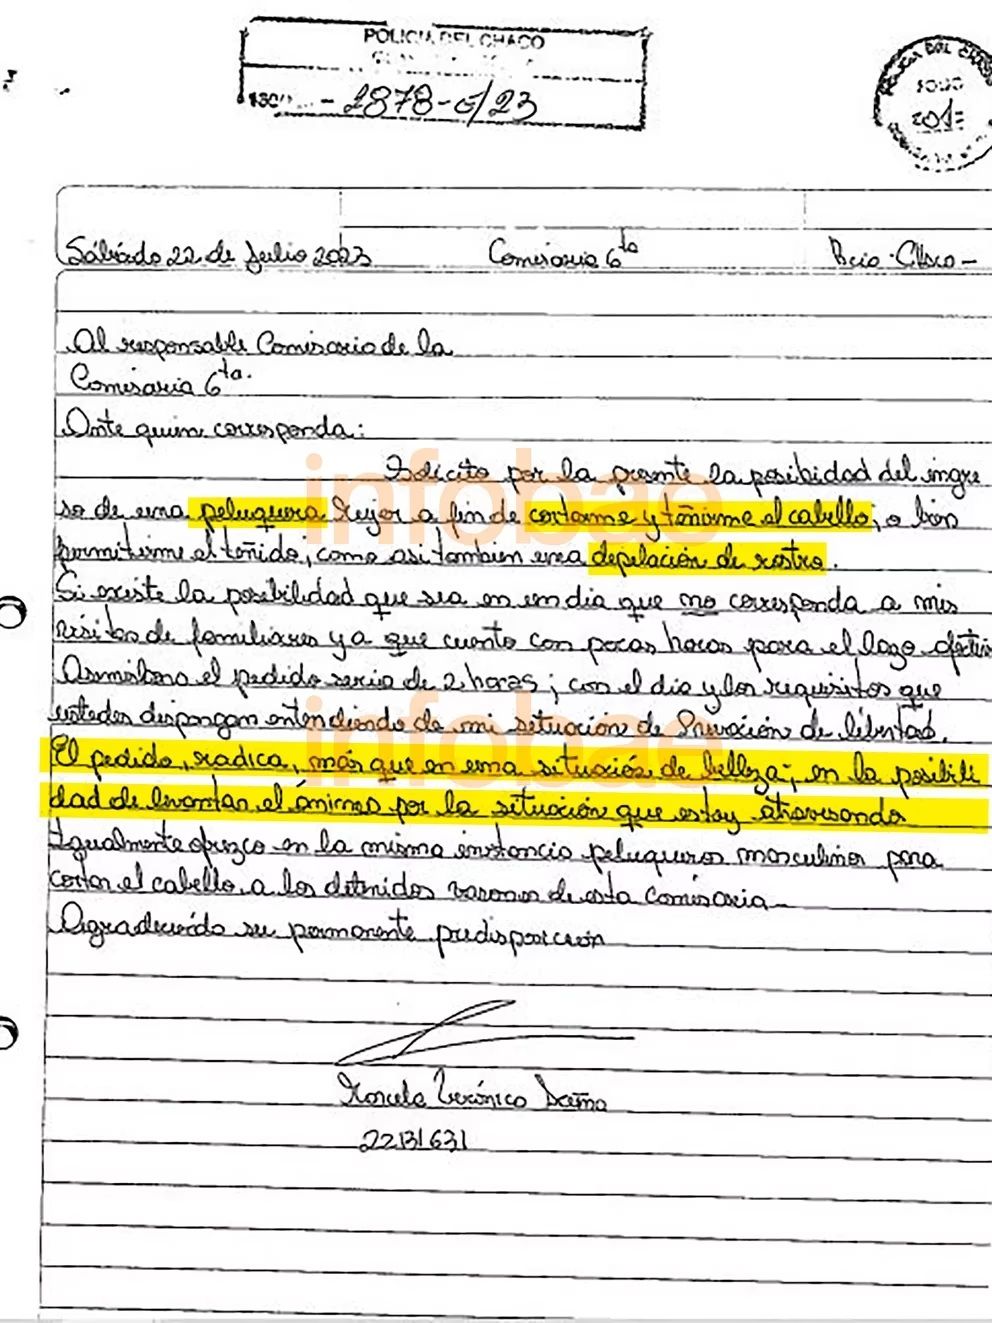 POLICIA DEL CHACO
- 2878-E/23
POLICIA DEL CHACO
FOLIO
Sábado 22 de Julio 2023 Comisaria 6ta Rcia - Chaco -
Al responsable Comisario de la
Comisaria 6ta.
Ante quien corresponda:
Solicito por la presente la posibidad del ingre
so de una peluquera Mujer a fin de cortarme y teñirme el cabello, o bien
permitirme el teñido; como asi tambien una depilación de rostro.
Si existe la posibilidad que sea en un dia que no corresponda a mis
visitas de familiares ya que cuento con pocas horas para el lazo afectivo
Asimismo el pedido seria de 2 horas; con el dia y los requisitos que
ustedes dispongan entendiendo de mi situación de Privación de libertad.
El pedido, radica, más que en una situación de belleza; en la posibili
dad de levantar el ánimo por la situación que estoy atravesando
Igualmente ofrezco en la misma instancia peluqueros masculinos para
cortar el cabello a los detenidos varones de esta Comisaria -
Agradeciendo su permanente predisposición
Marcela Verónica Acuña
22131631
infobae
infobae